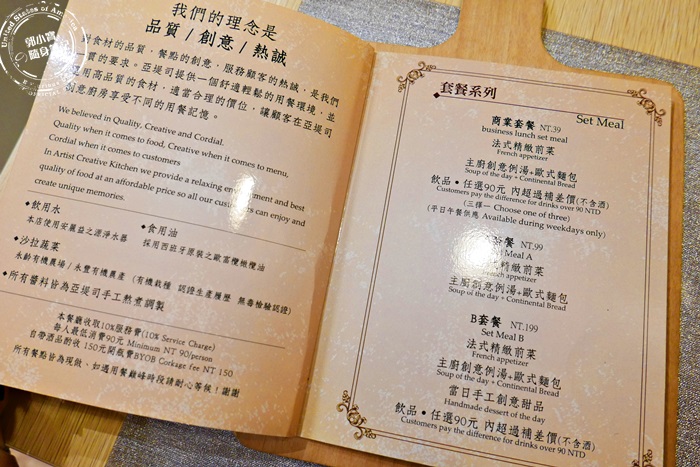 United States of America
郭小寶
隨身
我們的理念是
品質/創意/熱誠
對食材的品質、餐點的創意、服務顧客的熱誠、是我們
質的要求。亞堤司提供一個舒適輕鬆的用餐環境,並
用高品質的食材,適當合理的價位,讓顧客在亞堤司
創意廚房享受不同的用餐記憶。
We believed in Quality, Creative and Cordial.
Quality when it comes to food, Creative when it comes to menu,
Cordial when it comes to customers
In Artist Creative Kitchen we provide a relaxing environment and best
quality of food at an affordable price so all our customers can enjoy and
create unique memories.
◆飲用水
本店使用安麗益之源淨水器
◆食用油
採用西班牙原裝之歐萵欖橄欖油
◆沙拉蔬菜
永齡有機農場/永豐有機農產 (有機栽種 認證生產履歷 無毒檢驗認證)
◆所有醬料皆為亞堤司手工熬煮調製
本餐廳收取10%服務費(10% Service Charge)
每人最低消費90元 Minimum NT 90/person
自帶酒品酌收 150元開瓶費BYOB Corkage fee NT 150
所有餐點皆為現做,如遇用餐巔峰時段請耐心等候!謝謝
套餐系列
Set Meal
商業套餐 NT.39
business lunch set meal
法式精緻前菜
French appetizer
主廚創意例湯+歐式麵包
Soup of the day + Continental Bread
飲品•任選90元 內超過補差價(不含酒)
Customers pay the difference for drinks over 90 NTD
(三擇一 Choose one of three)
(平日午餐供應 Available during weekdays only)
套餐 NT.99
Meal A
精緻前菜
French appetizer
主廚創意例湯+歐式麵包
Soup of the day + Continental Bread
B套餐 NT.199
Set Meal B
法式精緻前菜
French appetizer
主廚創意例湯+歐式麵包
Soup of the day + Continental Bread
當日手工創意甜品
Handmade dessert of the day
飲品•任選90元 內超過補差價(不含酒)
Customers pay the difference for drinks over 90 NTD